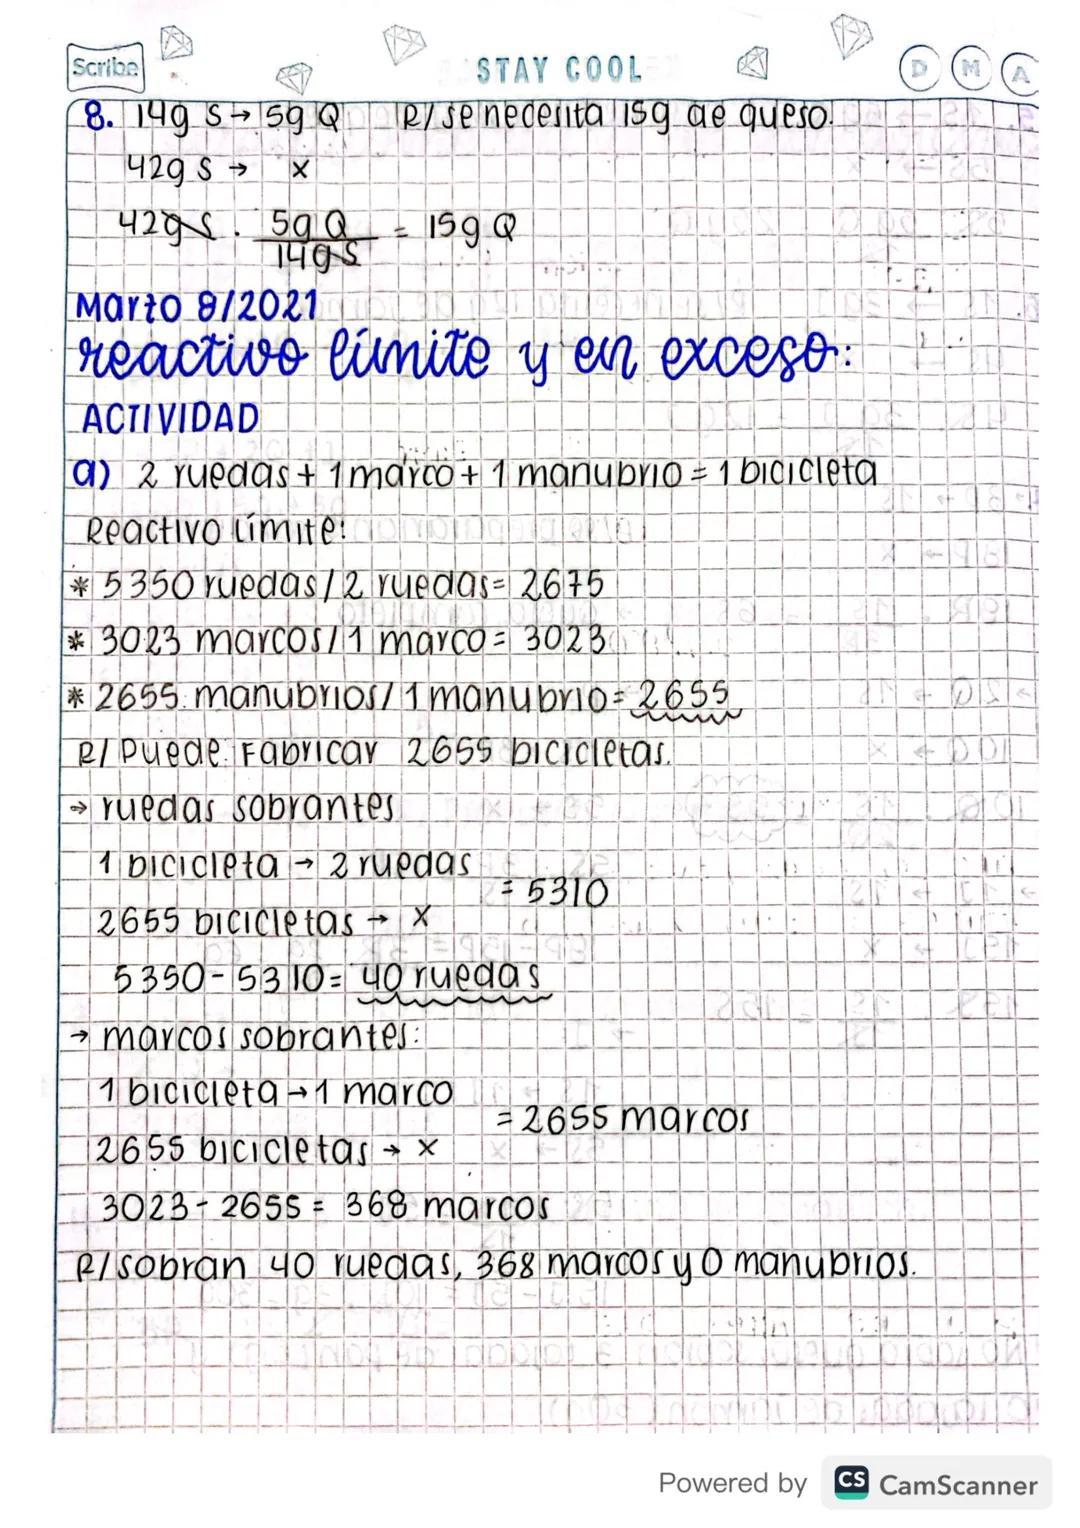 Scribe
STAY COOL
D M A
8. 14g S → 5g Q R/ se necesita 15g de queso.
42g S → x
42g S . 5g Q / 14g S = 15g Q
Marzo 8/2021
reactivo límite y en exceso:
ACTIVIDAD
a) 2 ruedas + 1 marco + 1 manubrio = 1 bicicleta
Reactivo límite:
* 5350 ruedas / 2 ruedas = 2675
* 3023 marcos / 1 marco = 3023
* 2655 manubrios / 1 manubrio = 2655
R/ Puede Fabricar 2655 bicicletas.
→ ruedas sobrantes
1 bicicleta → 2 ruedas
= 5310
2655 bicicletas → x
5350 - 5310 = 40 ruedas
→ marcos sobrantes:
1 bicicleta → 1 marco
= 2655 marcos
2655 bicicletas → x
3023 - 2655 = 368 marcos
R/ sobran 40 ruedas, 368 marcos y 0 manubrios.
Powered by CS CamScanner